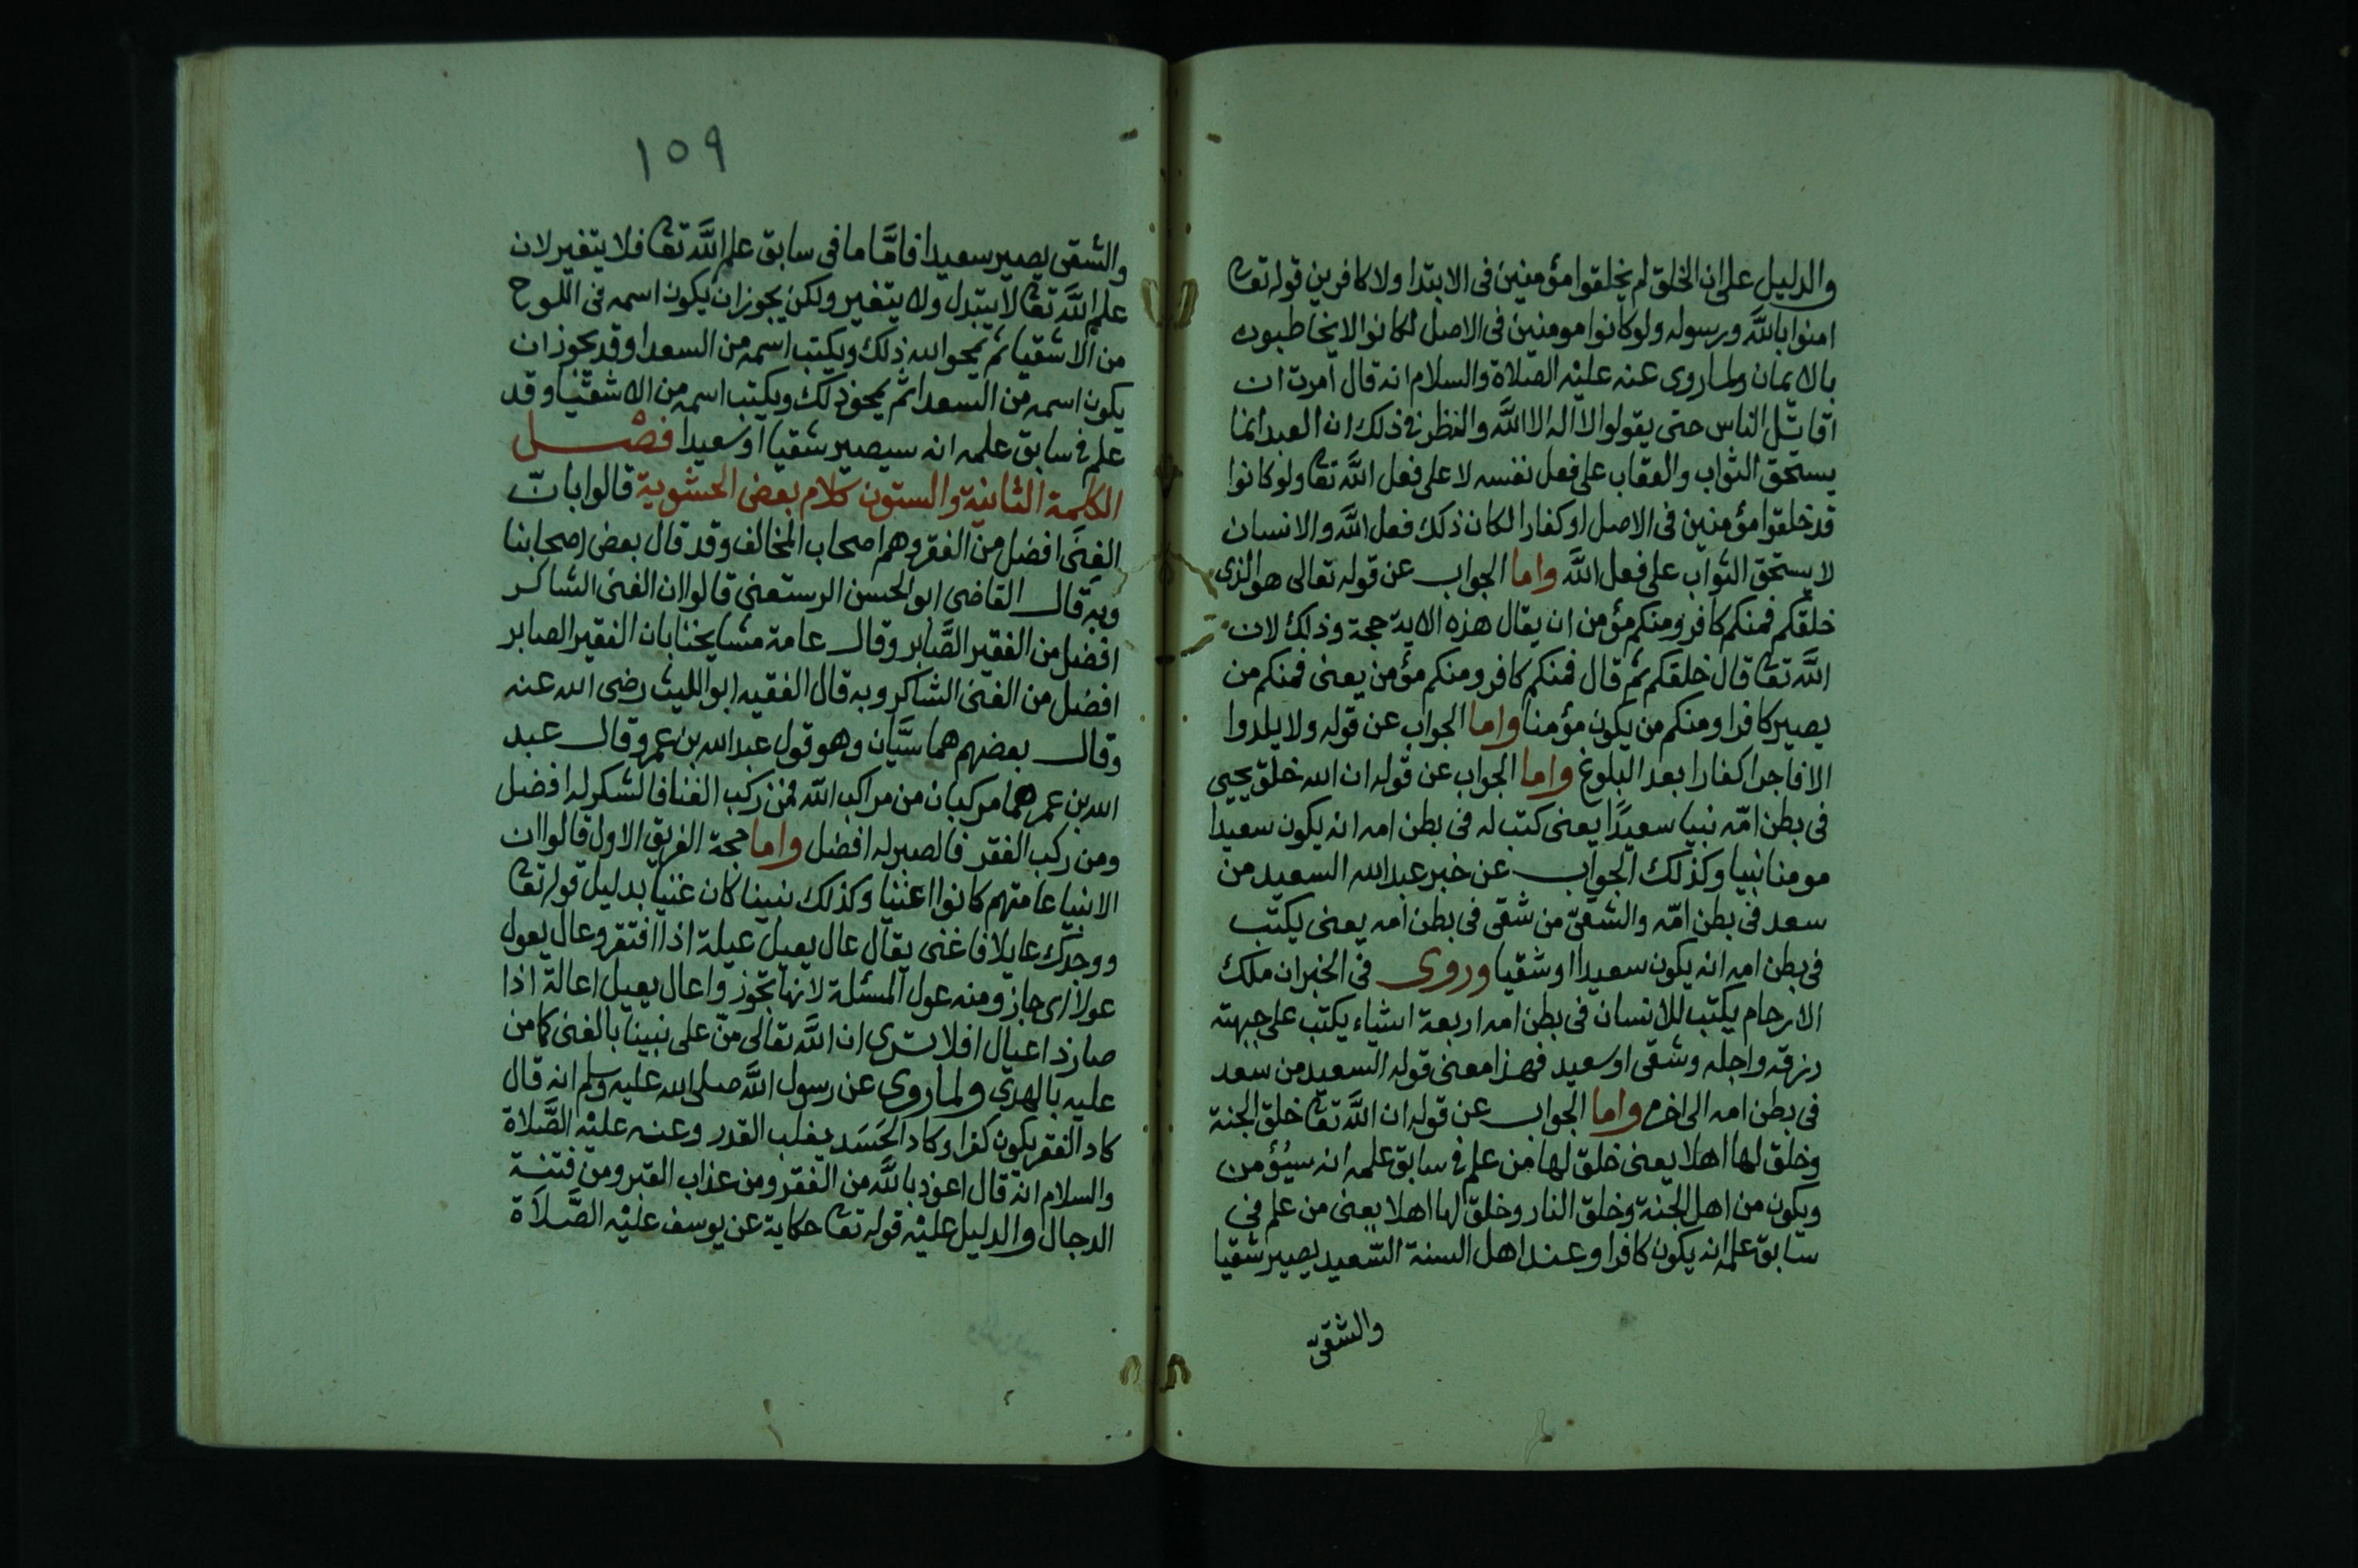 والدليل على ان الخلق لم يخلقوا مؤمنين فى الابتدا ولا كافرين قوله تعا
امنوا بالله ورسوله ولو كانوا مومنين فى الاصل لكانوا لا يخاطبون
بالايمان ولما روى عنه عليه الصلاة والسلام انه قال امرت ان
اقاتل الناس حتى يقولوا لا اله الا الله والنظر فى ذلك ان العبد انما
يستحق الثواب والعقاب على فعل نفسه لا على فعل الله تعا ولو كانوا
قد خلقوا مؤمنين فى الاصل او كفارا لكان ذلك فعل الله والانسان
لا يستحق الثواب على فعل الله واما الجواب عن قوله تعالى هو الذى
خلقكم فمنكم كافر ومنكم مؤمن ان يقال هذه الاية حجة وذلك لان
الله تعا قال خلقكم ثم قال فمنكم كافر ومنكم مؤمن يعنى فمنكم من
يصير كافرا ومنكم من يكون مؤمنا واما الجواب عن قوله ولا يلدوا
الا فاجرا كفارا بعد البلوغ واما الجواب عن قوله ان الله خلق يحيى
فى بطن امّه نبيا سعيدًا يعنى كتب له فى بطن امه انه يكون سعيدا
مومنا نبيا وكذلك الجواب عن خبر عبد الله السعيد من
سعد فى بطن امّه والشقىّ من شقى فى بطن امه يعنى يكتب
فى بطن امه انه يكون سعيدا او شقيا وروى فى الخبر ان ملك
الارحام يكتب للانسان فى بطن امه اربعة اشياء يكتب على جبهته
رزقه واجله وشقى او سعيد فهذا معنى قوله السعيد من سعد
فى بطن امه الى اخره واما الجواب عن قوله ان الله تعا خلق الجنة
وخلق لها اهلا يعنى خلق لها من علم فى سابق علمه انه سيُؤمن
ويكون من اهل الجنة وخلق النار وخلق لها اهلا يعنى من علم فى
سابق علمه انه يكون كافرا وعند اهل السنة السّعيد يصير شقيا
والشقىّ
١٥٩
والشقى يصير سعيدا فامّا ما فى سابق علم الله تعا فلا يتغير لان
علم الله تعا لا يتبدل ولا يتغير ولكن يجوز ان يكون اسمه فى اللوح
من الاشقيا ثم يمحو الله ذلك ويكتب اسمه من السعدا وقد يجوز ان
يكون اسمه من السعدا ثم يمحو ذلك ويكتب اسمه من الاشقيا وقد
علم فى سابق علمه انه سيصير شقيا او سعيدا فصل
الكلمة الثانية والستون كلام بعض الحشوية قالوا بانّ
الغِنَى افضل من الفقر وهم اصحاب المخالف وقد قال بعض اصحابنا
وبه قال القاضى ابو الحسن الرستغنى قالوا ان الغنى الشاكر
افضل من الفقير الصَّابر وقال عامة مشايخنا بان الفقير الصابر
افضل من الغنى الشاكر وبه قال الفقيه ابو الليث رضى الله عنه
وقال بعضهم هما سيَّان وهو قول عبد الله بن عمر وقال عبد
الله بن عمر هما مركبان من مراكب الله فمن ركب الغنا فالشكر له افضل
ومن ركب الفقر فالصبر له افضل واما حجة الفريق الاول قالوا ان
الانبيا عامتهم كانوا اغنيا وكذلك نبينا كان غنيا بدليل قوله تعا
ووجدك عايلا فاغنى يقال عال يعيل عيلة اذا افتقر وعال يعول
عولا اى جاز ومنه عول المسئلة لانها تجوز واعال يعيل اعالة اذا
صار ذا عيال افلا ترى ان الله تعالى منّ على نبينا بالغنى كما من
عليه بالهدى ولما روى عن رسول الله صلى الله عليه وسلم انه قال
كاد الفقر يكون كفرا وكاد الحَسَد يغلب القدر وعنه عليه الصَّلاة
والسلام انه قال اعوذ بالله من الفقر ومن عذاب القبر ومن فتنة
الدجال والدليل عليه قوله تعا حكاية عن يوسف عليه الصَّلاة